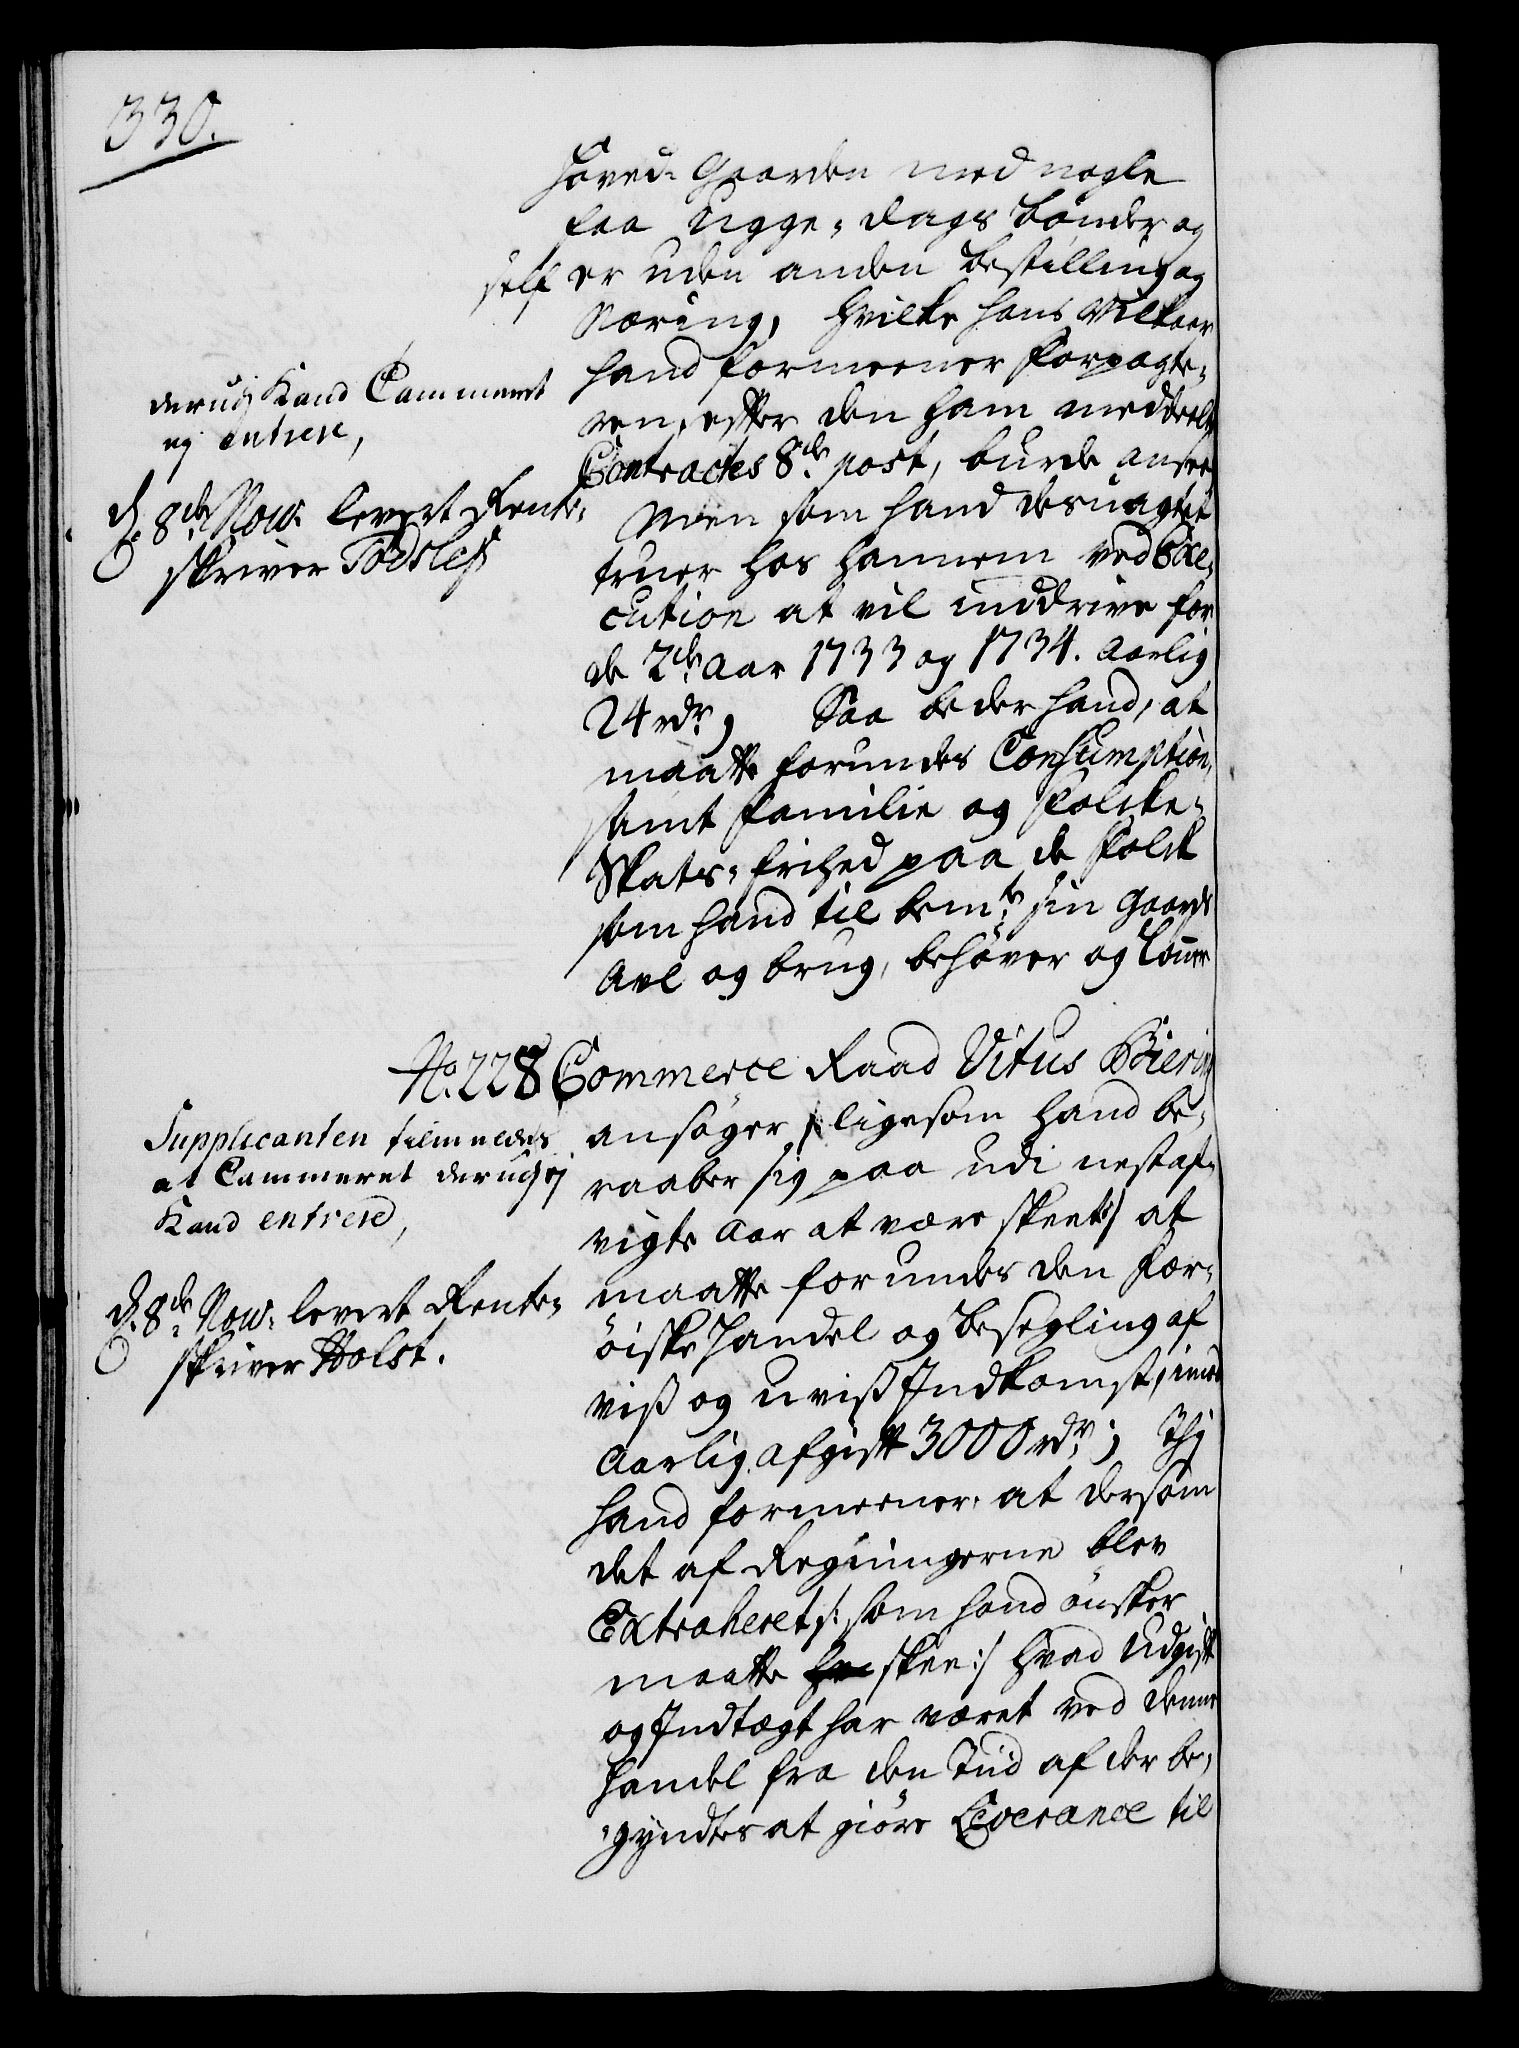 330.
Hoved-Gaarden med nogle
faa Ugge-dags bønder og
self er uden anden bestilling og
Næring, hvilke hans Vilkaar
hand formeener Forpagte-
ren, efter den ham meddeelte
Contractes 8de post, burde ansee
Men som hand desuagtet
truer hos hannem ved Exe-
cution at vil inddrive for
de 2de Aar 1733 og 1734. Aarlig
24 rdr, Saa beder hand, at
maatte forundes Consumptions,
samt Familie og Folcke-
Skats-frihed paa de Folck
som hand til bemte sin Gaards
Avl og brug, behøver og lønner
derudj Kand Cammeret
ej entrere,
d. 8de Nov: levert Rente-
skriver
No. 228 Commerce Raad Vitus Biering
ansøger /: ligesom hand be-
raaber sig paa udi nestaf-
vigte Aar at være skeet :/ at
maatte forundes den Fær-
øiske Handel og besegling af
viss og uviss Indkomst, imod
Aarlig Afgift 3000 rdr; Thj
hand formeener, at dersom
det af Regningerne blev
Extraheret /: som hand ønsker
maatte skee :/ hvad Udgift
og Indtægt har været ved denne
Handel fra den Tiid af der be-
gyndtes at giøre Leverance til
Supplicanten tilmeldes
at Cammeret derudj ej
Kand entrere,
d. 8de Nov: levert Rente-
skriver Holst.